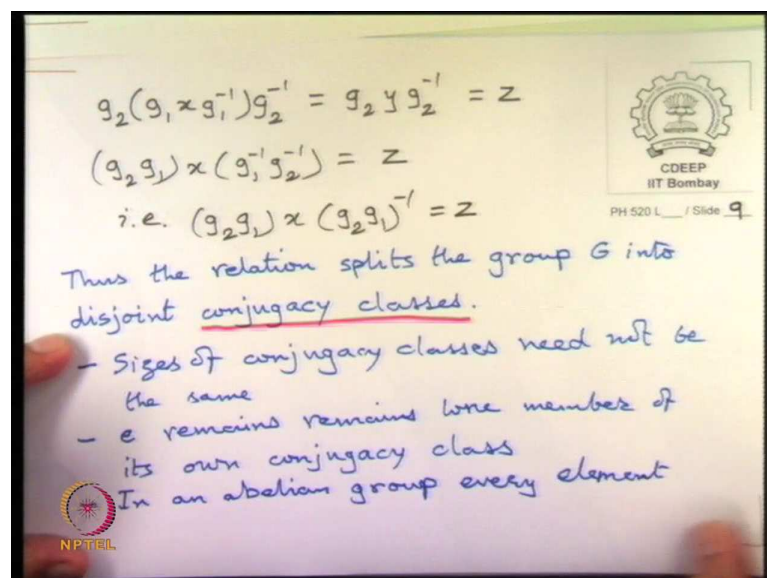 g₂(g₁ x g₁⁻¹)g₂⁻¹ = g₂ y g₂⁻¹ = z
(g₂g₁) x (g₁⁻¹g₂⁻¹) = z
i.e. (g₂g₁) x (g₂g₁)⁻¹ = z
CDEEP
IIT Bombay
PH 520 L___ / Slide 9
Thus the relation splits the group G into
disjoint conjugacy classes.
- Sizes of conjugacy classes need not be
the same
- e remains remains lone member of
its own conjugacy class
In an abelian group every element
NPTEL